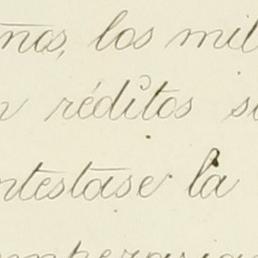 nas, los mil
n réditos s
ntestase la